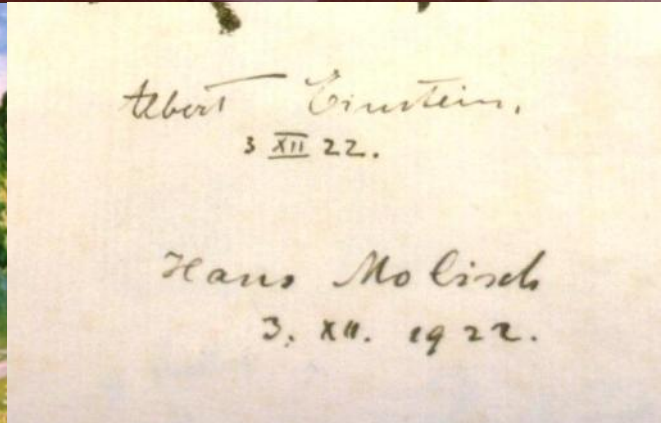 Albert Einstein.
3 XII 22.
Hans Molisch
3. XII. 1922.